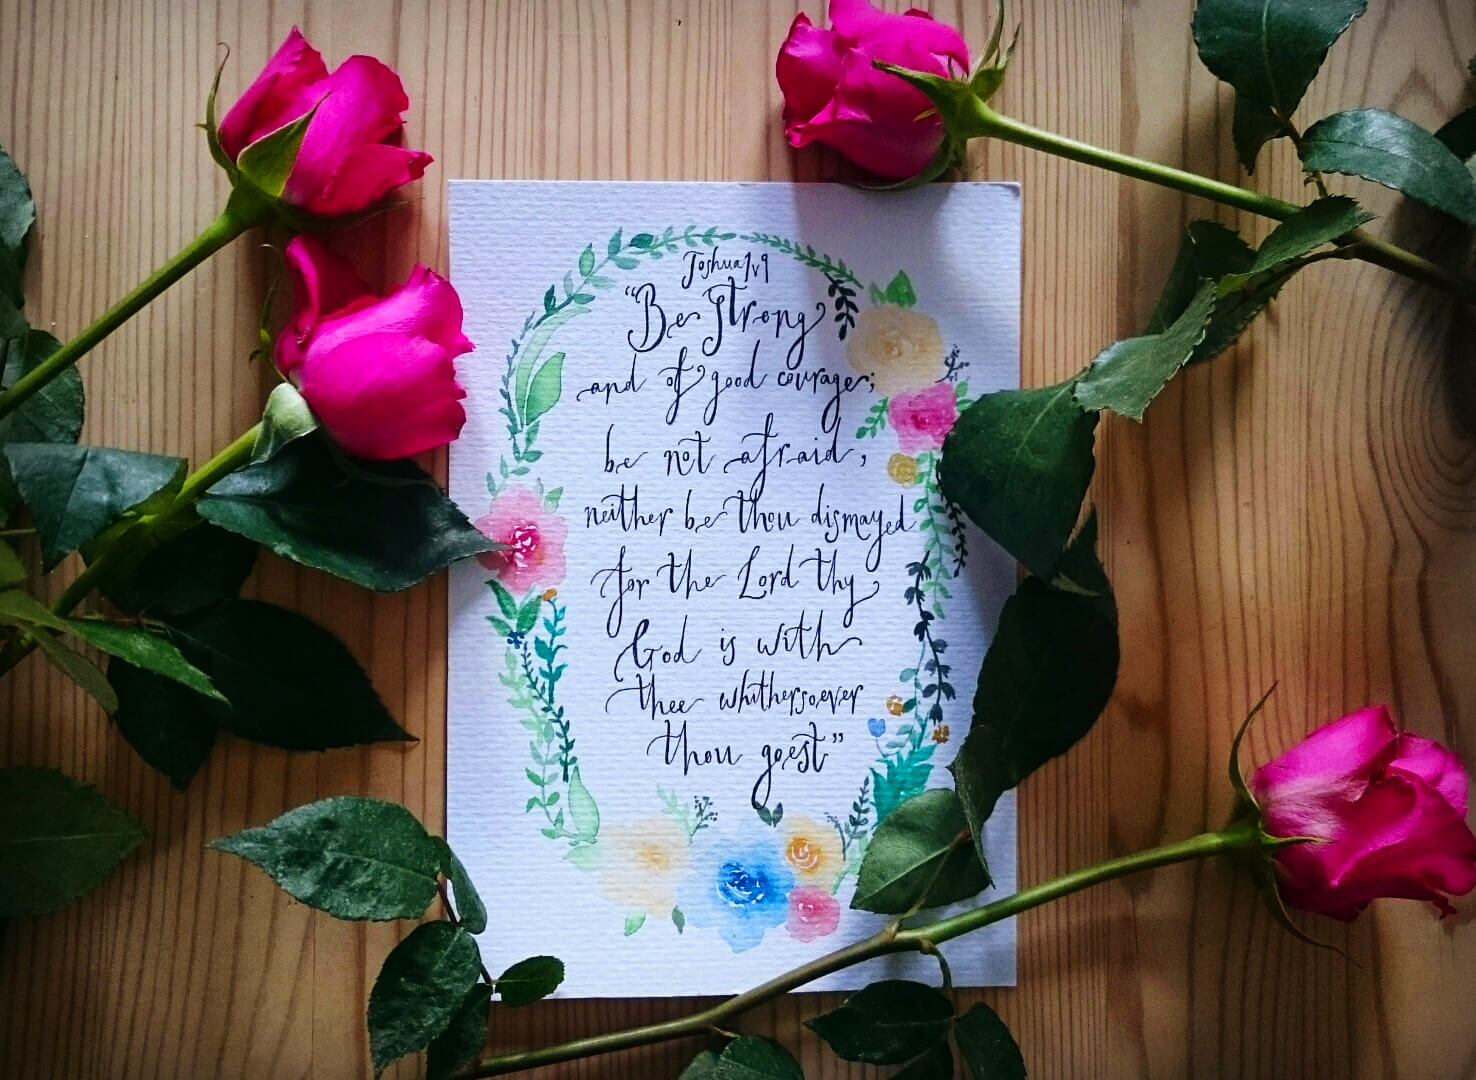 Joshua1v9
"Be strong
and of good courage;
be not afraid,
neither be thou dismayed
for the Lord thy
God is with
thee whithersoever
thou goest"